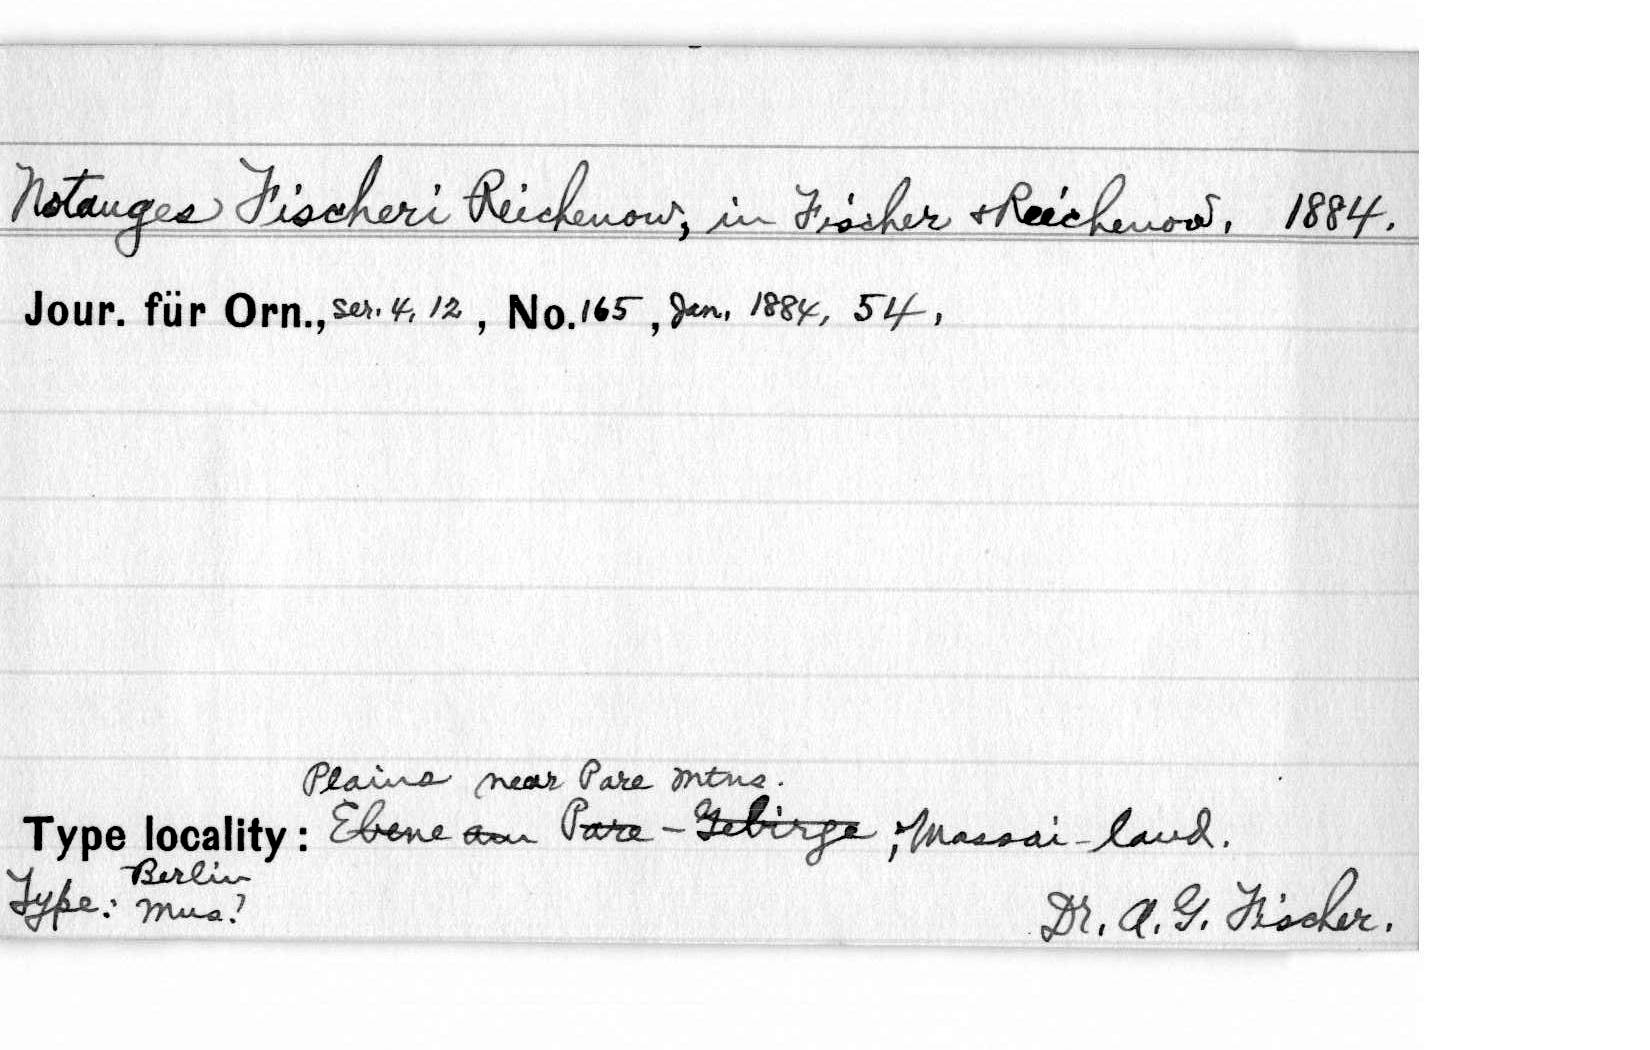 Notauges Fischeri Reichenow, in Fischer & Reichenow, 1884.
Jour. für Orn., ser. 4, 12, No. 165, Jan. 1884, 54,
Plains near Pare Mtns.
Type locality: Ebene am Pare-Gebirge, Massai-land.
Berlin
Type: Mus.?
Dr. A. G. Fischer.